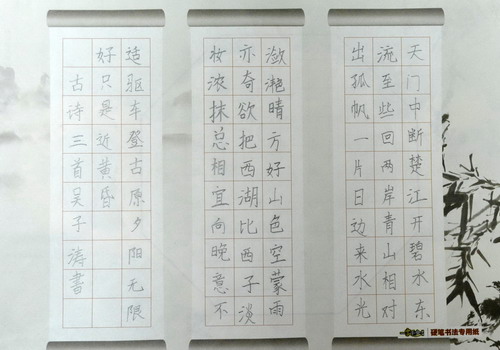 天门中断楚江开碧水东
流至些回两岸青山相对
出孤帆一片日边来水光
潋滟晴方好山色空蒙雨
亦奇欲把西湖比西子淡
妆浓抹总相宜向晚意不
适驱车登古原夕阳无限
好只是近黄昏
古诗三首吴子涛书
硬笔书法专用纸